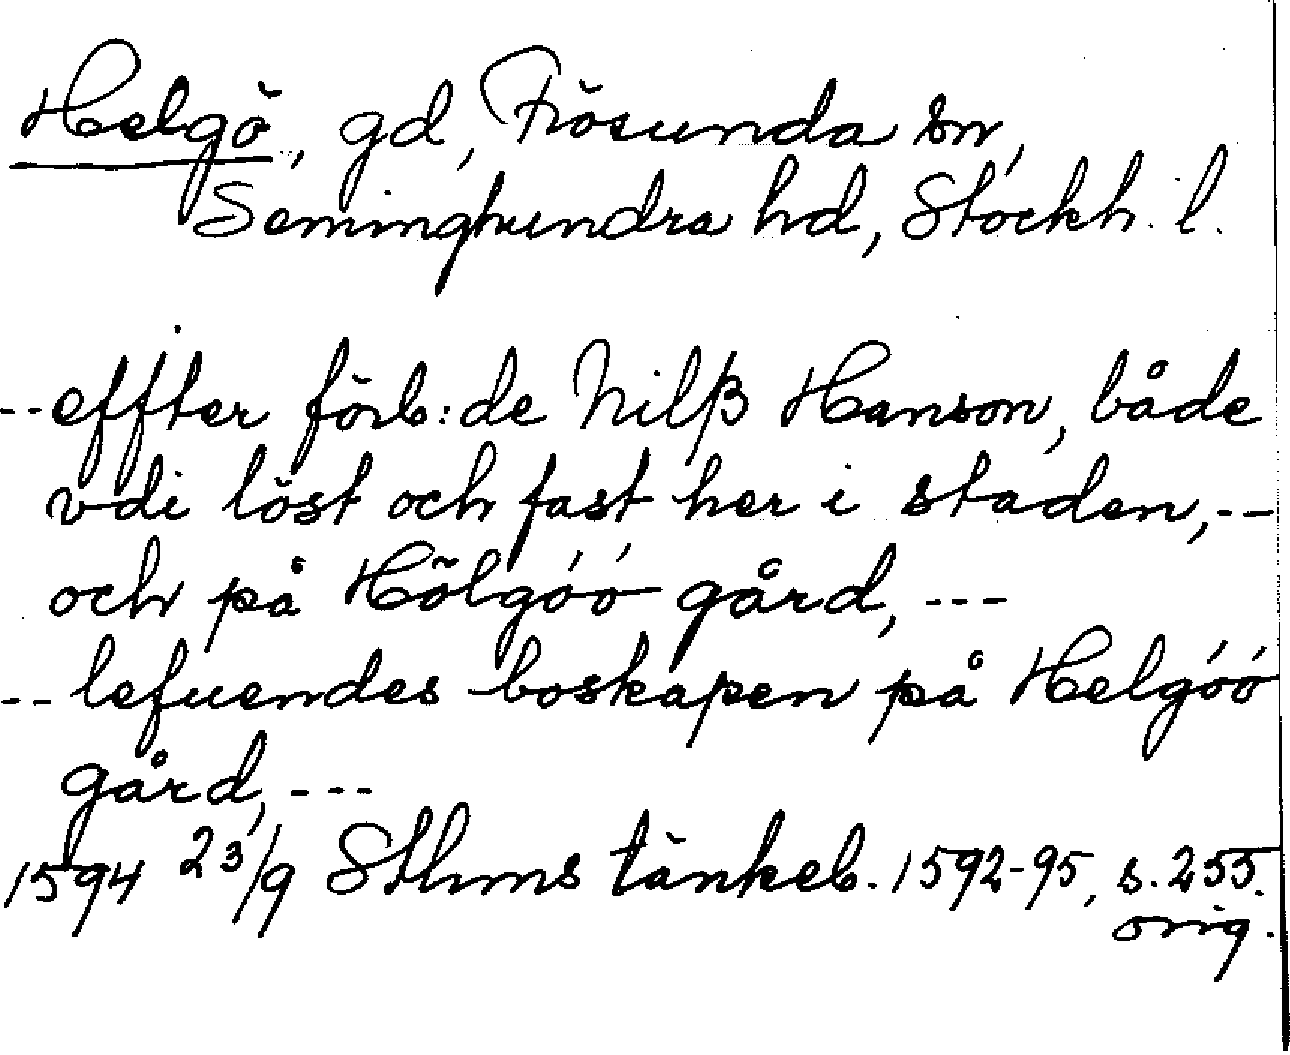 Helgö, gd, Frösunda sn,
Seminghundra hd, Stockh. l.
-- effter förb:de Nilß Hanson, både
vdi löst och fast her i staden, --
och på Hölgóó gård, ---
-- lefuendes boskapen på Helgóó
gård, ---
1594 23/9 Sthms tänkeb. 1592-95, s. 255.
orig.